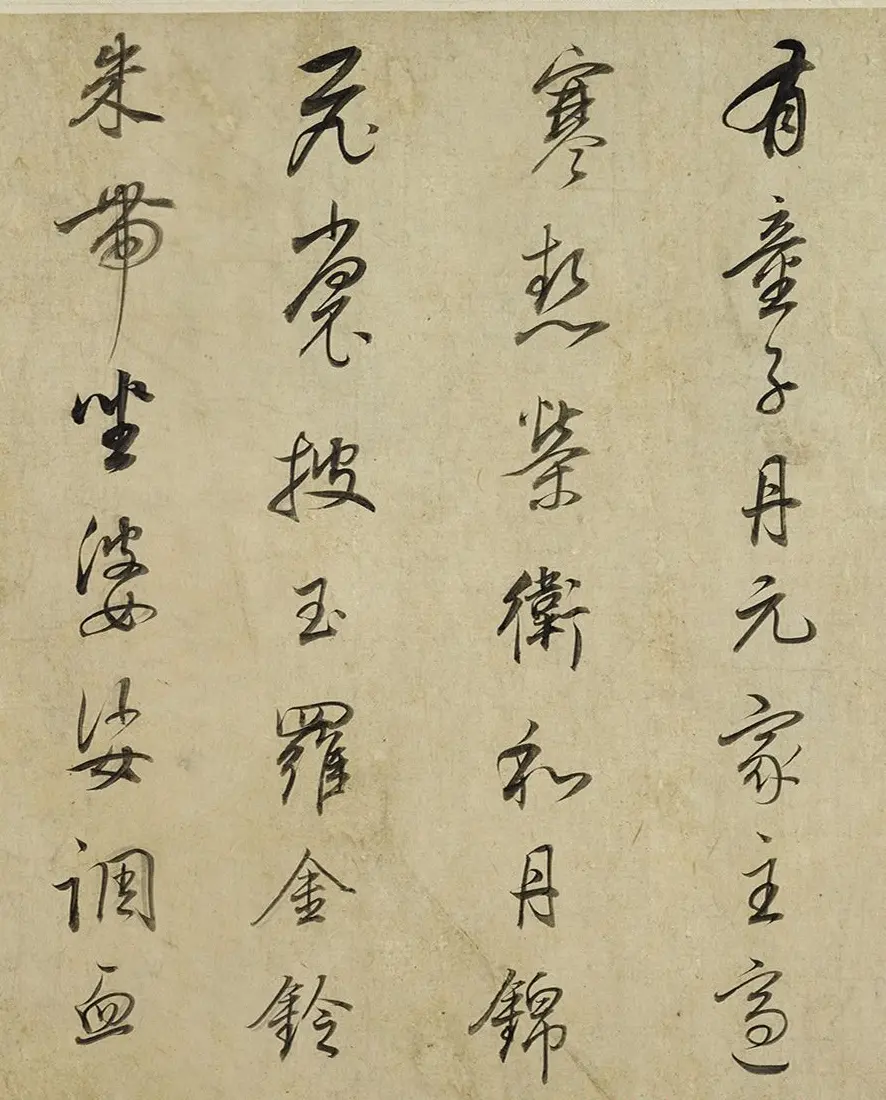 有童子丹元家主適
寒熱榮衛和丹錦
飛裳披玉羅金鈴
朱帶坐婆娑調血